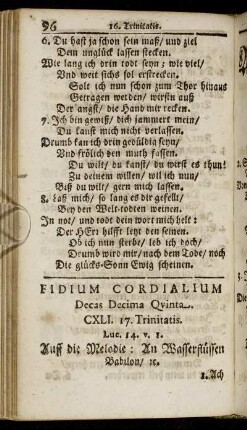 96 16. Trinitatis.
6. Du hast ja schon sein maß/ und ziel
Dem unglück lassen stecken.
Wie lang ich drin todt seyn; wie viel/
Und weit sichs sol erstrecken.
Solt ich nun schon zum Thor hinaus
Getragen werden/ wirstu auß
Der angst/ die Hand mir recken.
7. Ich bin gewiß/ dich jammert mein/
Du kanst mich nicht verlassen.
Drumb kan ich drin gedüldig seyn/
Und frölich den muth fassen.
Du wilt/ du kanst/ du wirst es thun!
Zu deinem willen/ wil ich nun/
Biß du wilt/ gern mich lassen.
8. Laß mich/ so lang es dir gefellt/
Bey den Welt-todten weinen.
In not/ und todt dein wort mich helt:
Der HErr hilfft letzt den seinen.
Ob ich nun sterbe/ leb ich doch/
Drumb wird mir/ nach dem Tode/ noch
Die glücks-Sonn Ewig scheinen.
FIDIUM CORDIALIUM
Decas Decima Qvinta.
CXLI. 17. Trinitatis.
Luc. 14. v. 1.
Auff die Melodie: An Wasserflüssen
Babilon/ ꝛc.
1. Ach